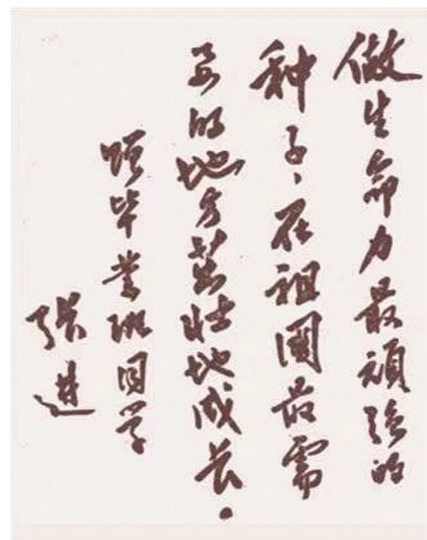 做生命力最頑強的
种子、在祖國最需
要的地方茁壮地成长。
赠毕业班同学
張进